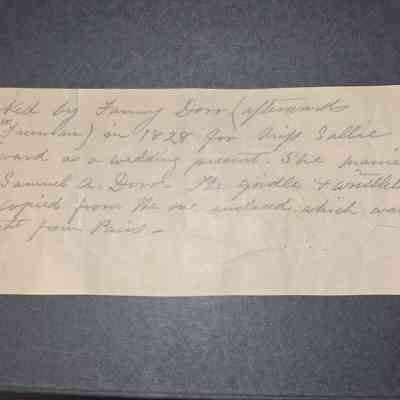 ked by Fanny Dorr (afterwards
Freeman) in 1828 for Miss Sallie
ward as a wedding present. She marrie
Samuel A. Dorr. The girdle & wristlet
copied from the one inclosed which wa
ht from Paris -